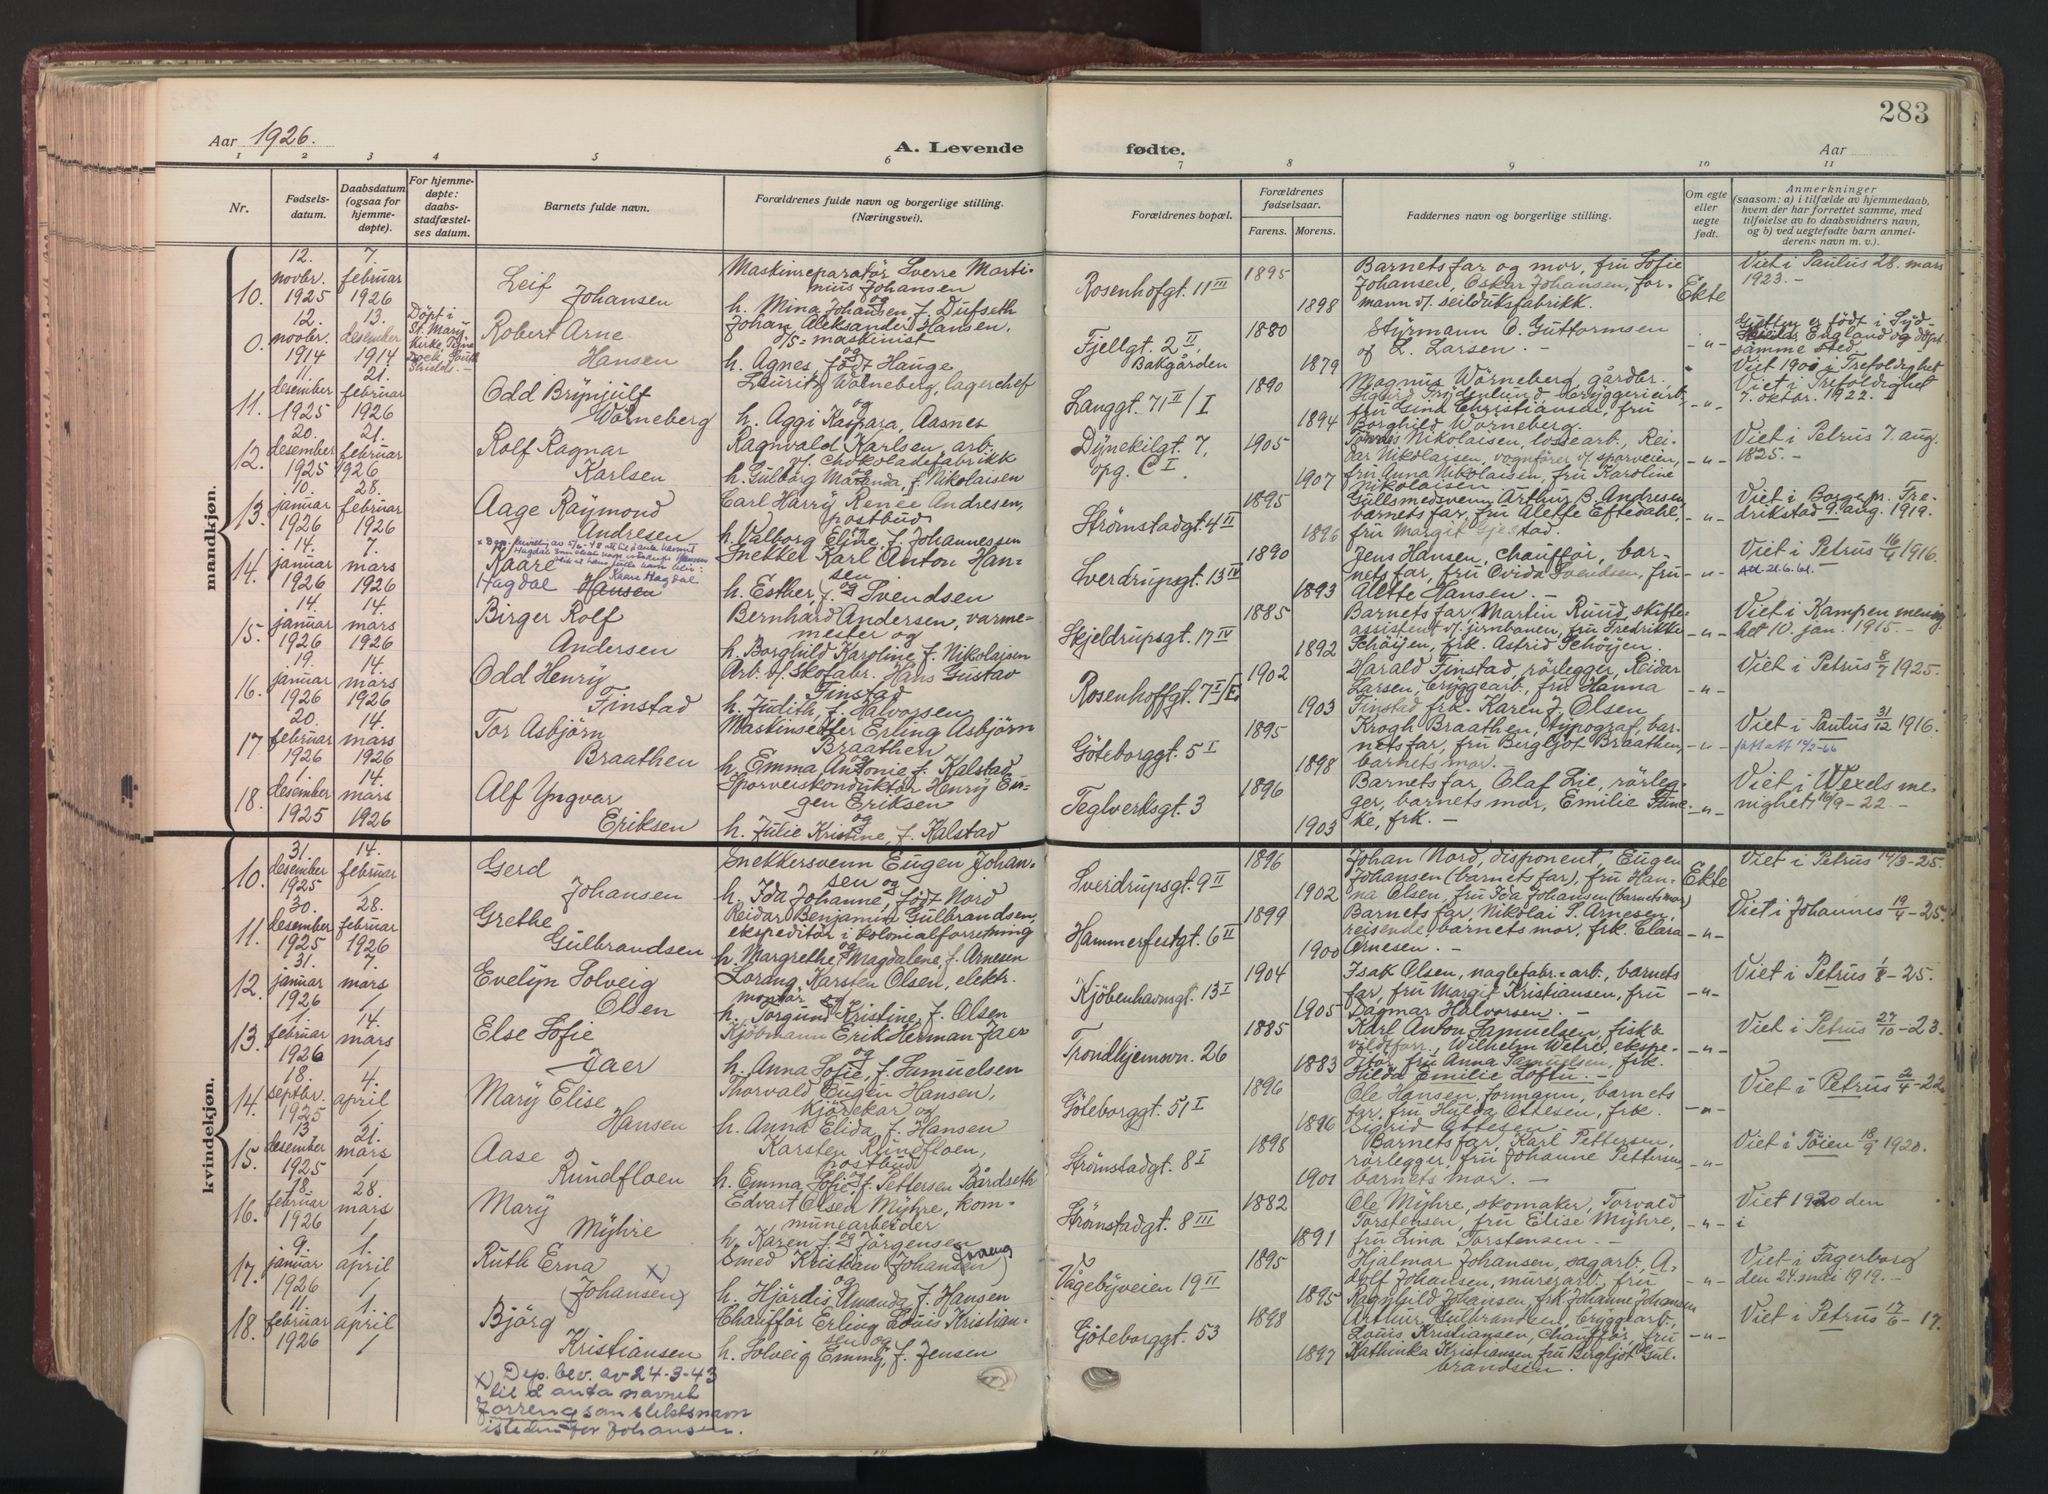 283
Aar 1926.
A. Levende
fødte.
Aar
1 2 3 4 5 6 7 8 9 10 11
Nr.
Fødsels-
datum.
Daabsdatum
(ogsaa for
hjemme-
døpte).
For hjemme-
døpte:
daabs-
stadfæstel-
ses datum.
Barnets fulde navn.
Forældrenes fulde navn og borgerlige stilling.
(Næringsvei).
Forældrenes bopæl.
Forældrenes
fødselsaar.
Farens. Morens.
Faddernes navn og borgerlige stilling.
Om egte
eller
uegte
født.
Anmerkninger
(saasom: a) i tilfælde av hjemmedaab,
hvem der har forrettet samme, med
tilføielse av to daabsvidners navn,
og b) ved uegtefødte barn anmel-
derens navn m. v.).
mandkjøn.
10.
12.
novbr.
1925
7.
februar
1926
Leif
Johansen
Maskinreparatör Sverre Marti-
nius Johansen
og
h. Mina Johansen, f. Dufseth
Rosenhofgt. 11 III
1895
1898
Barnets far og mor, fru Sofie
Johansen, Oskar Johansen, for-
mann v. seilduksfabrikk.
Ekte
Viet i Paulus 28. mars
1923. -
0.
12.
novbr.
1914
13.
desember
1914
Döpt i
St. Marys
Kirke, Tyne
Dock, South
Shields. -
Robert Arne
Hansen
Johan Aleksander Hansen,
d/s = maskinist
og
h. Agnes, födt Hauge
Fjellgt. 2 II,
Bakgården
1880
1879
Styrmann O. Guttormsen
og L. Larsen. -
-"-
Gutten er födt i Syd
Shields, England og döpt
samme sted.
Viet 1900 i Trefoldighet
11.
11.
desember
1925
21.
februar
1926
Odd Brynjulf
Wörneberg
Lauritz Wörneberg, lagerchef
og
h. Aggi Kaspara, Aasnes
Langgt. 71 II/I
1890
1894
Magnus Wörneberg, gårdbr.
Sigurd Frydenlund, bryggeriarb.,
fru Lina Christiansen, fru
Borghild Wörneberg.
-"-
Viet i Trefoldighet
7. oktbr. 1922.
12.
20.
desember
1925
21.
februar
1926
Rolf Ragnar
Karlsen
Ragnvald Karlsen, arb.
v. chokoladefabrikk
og
h. Gulborg Marenda, f. Nikolaisen
Dynekilgt. 7,
opg. C I.
1905
1907
Tönnes Nikolaisen, lossearb., Rei-
dar Nikolaisen, vognförer v. sporveien,
fru Anna Nikolaisen, fru Karoline
Nikolaisen
-"-
Viet i Petrus 7. aug.
1825. -
13.
10.
januar
1926
28.
februar
1926
Aage Raymond
Andresen
Carl Harry Renee Andresen,
postbud
h. Valborg Elide, f. Johannessen
Strømstadgt. 4 II
1895
1896
Gullsmedsvenn Arthur B. Andresen,
barnets far, fru Aleffe Eftedahl,
fru Margit
-"-
Viet i Borge pr. Fre-
drikstad 9. aug. 1919.
14.
14.
januar
1926
7.
mars
1926
Kaare
Hagdal Hansen
Kaare Hagdal
Snekker Karl Anton Han-
sen
og
h. Esther, f. Svendsen
Sverdrupsgt. 13 IV
1890
1893
Jens Hansen, chauffør, bar-
nets far, fru Ovida Svendsen, fru
Alette Hansen. -
-"-
Viet i Petrus 16/4 1916.
Att 21.6.61.
15.
14.
januar
1926
14.
mars
1926
Birger Rolf
Andersen
Bernhard Andersen, varme-
mester og
h. Borghild Karoline, f. Nikolaisen
Skjeldrupsgt. 17 IV
1885
1892
Barnets far, Martin Ruud, skifte-
assistent v. jernbanen, fru Fredrikke
Schöyen, frk. Astrid Schöyen.
-"-
Viet i Kampen menig-
het 10. jan. 1915. -
16.
19.
januar
1926
14.
mars
1926
Odd Henry
Finstad
Arb. v. Skofabr. Hans Gustav
Finstad
h. Judith, f. Halvorsen
Rosenhoffgt. 7 I/E.
1902
1903
Harald Finstad, rörlegger, Reidar
Larsen, bryggearb., fru Hanna
Finstad, frk. Karen J. Olsen
-"-
Viet i Petrus 8/7 1925.
17.
20.
februar
1926
14.
mars
1926
Tor Asbjörn
Braathen
Maskinsetter Erling Asbjörn
Braathen
og
h. Emma Antonie, f. Kalstad
Göteborggt. 5 I
1895
1898
Krogh Braathen, typograf, bar-
nets far, fru Bergljot Braathen,
barnets mor. -
-"-
Viet i Paulus 31/12 1916.
18.
1.
desember
1925
14.
mars
1926
Alf Yngvar
Eriksen
Sporveiskonduktör Henry Eu-
gen Eriksen
og
h. Julie Kristine, f. Kalstad
Teglverksgt. 3
1896
1903
Barnets far, Olaf Lie, rörleg-
ger, barnets mor, Emilie Fun-
ke, frk. -
-"-
Viet i Wexels me-
nighet 16/9-22. -
kvindekjøn.
10.
31.
desember
1925
14.
februar
/
Gerd
Johansen
Snekkersvenn Eugen Johan-
sen og
h. Ida Johanne, födt Nord
Sverdrupsgt. 9 II
1896
1902
Johan Nord, disponent, Eugen
Johansen (barnets far), fru Han-
na Olsen, fru Ida Johansen (barnets mor)
Ekte
Viet i Petrus 14/3-25.
11.
30.
desember
1925
28.
februar
1926
Grethe
Gulbrandsen
Reidar Benjamin Gulbrandsen,
ekspeditör i kolonialforretning
og
h. Margrethe Magdalene, f. Arnesen
Hammerfestgt. 6 II
1899
1900
Barnets far, Nikolai S. Arnesen,
reisende, barnets mor, frk. Clara
Arnesen. -
-"-
Viet i Johannes 19/4-25.
12.
31.
januar
1926
7.
mars
/
Evelyn Solveig
Olsen
Lorang Karsten Olsen, elektr.
montör og
h. Torgund Kristine, f. Olsen
Kjöbenhavnsgt. 13 I
1904
1905
Isak Olsen, naglefabr.=arb., barnets
far, fru Margit Kristiansen, fru
Dagmar Halvorsen. -
-"-
Viet i Petrus 1/8-25.
13.
1.
februar
1926
14.
mars
/
Else Sofie
Jaer
Kjöbmann Erik Herman Jaer
og
h. Anna Sofie, f. Samuelsen
Trondhjemsvn. 26
1885
1883
Karl Anton Samuelsen, fisk &
vildtforr., Wilhelm Wetre, ekspe-
ditör, fru Anna Samuelsen, frk.
Hilda Emilie Loftu. -
-"-
Viet i Petrus 27/10-23.
14.
18.
septbr.
1925
4.
april
/
Mary Elise
Hansen
Thorvald Eugen Hansen,
kjörekar og
h. Anna Elida, f. Hansen
Göteborggt. 51 I
1896
1896
Ole Hansen, formann, barnets
far, fru Hulda Ottesen, frk.
Sigrid Ottesen
-"-
Viet i Petrus 2/4-22
15.
13
desember
1925
21.
mars
/
Aase
Rundfloen
Karsten Rundfloen,
postbud
h. Emma Sofie, f. Pettersen Bårdseth
Strømstadgt. 8 I
1898
1901
Barnets far, Karl Pettersen,
rörlegger, fru Johanne Pettersen,
barnets mor. -
-"-
Viet i Töien 18/9 1920.
16.
18.
februar
1926
28.
mars
/
Mary
Myhre
Edvart Olsen Myhre, kom-
munearbeider
og
h. Karen f. Jörgensen
Strømstadgt. 8 III
1882
1891
Ole Myhre, skomaker, Torvald
Torstensen, fru Elise Myhre,
fru Lina Torstensen. -
-"-
Viet 1920 den
i
17.
9.
januar
1926
1.
april
/
Ruth Erna
(Johansen) x)
Smed Kristian (Johansen)
og
h. Hjördis Amanda, f. Hansen
Vågebyveien 19 II
1895
1895
Hjalmar Johansen, sagarb., A-
dolf Johansen, murerarb., fru
Ragnhild Johansen, frk. Johanne Johansen
-"-
Viet i Fagerborg
den 24. mai 1919. -
18.
11.
februar
1926
1.
april
/
Björg
Kristiansen
Chaufför Erling Louis Kristian-
sen og
h. Solveig Emmy, f. Jensen
Göteborggt. 53
1898
1897
Arthur Gulbrandsen, bryggearb.,
Louis Kristiansen, chauffør, fru
Kathinka Kristiansen, fru Bergljot Gul-
brandsen.
-"-
Viet i Petrus 17/6-17.
x) Dep. bev. av 24-3-43
til å anta navnet
Forreng som slektsnavn
istedenfor Johansen.